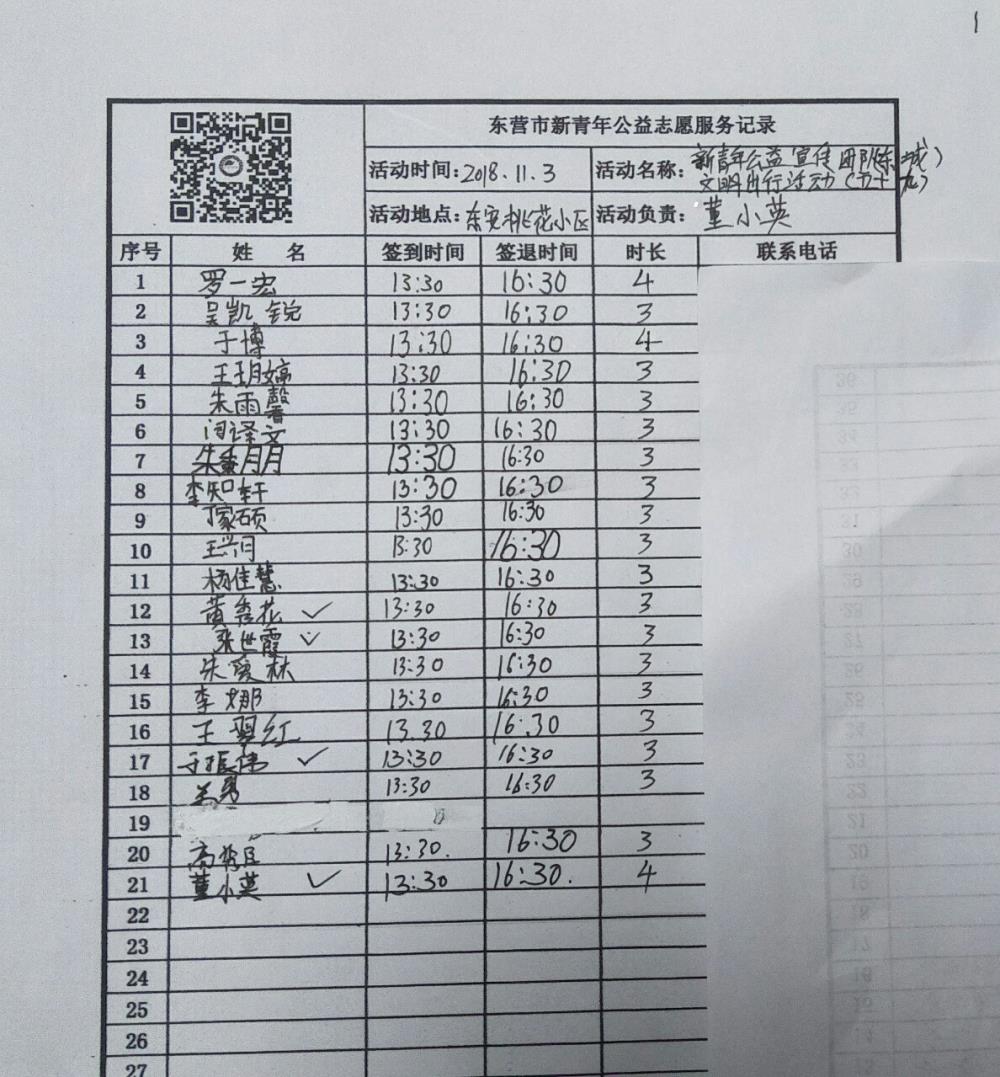 东营市新青年公益志愿服务记录
活动时间:2018.11.3 活动名称:新青年公益宣传团队(东城)
文明出行活动(五十九)
活动地点:东安桃花小区 活动负责:董小英
序号 姓 名 签到时间 签退时间 时长 联系电话
1 罗一宏 13:30 16:30 4
2 吴凯锐 13:30 16:30 3
3 于博 13:30 16:30 4
4 王玥婷 13:30 16:30 3
5 朱雨馨 13:30 16:30 3
6 闫译文 13:30 16:30 3
7 朱 13:30 16:30 3
8 李知轩 13:30 16:30 3
9 丁家硕 13:30 16:30 3
10 王 13:30 16:30 3
11 杨佳慧 13:30 16:30 3
12 黄秀花 ✓ 13:30 16:30 3
13 张世霞 ✓ 13:30 16:30 3
14 朱爱林 13:30 16:30 3
15 李娜 13:30 16:30 3
16 王翠红 13.30 16:30 3
17 于振伟 ✓ 13:30 16:30 3
18 13:30 16:30 3
19
20 高 13:30. 16:30 3
21 董小英 ✓ 13:30 16:30. 4
22
23
24
25
26
27